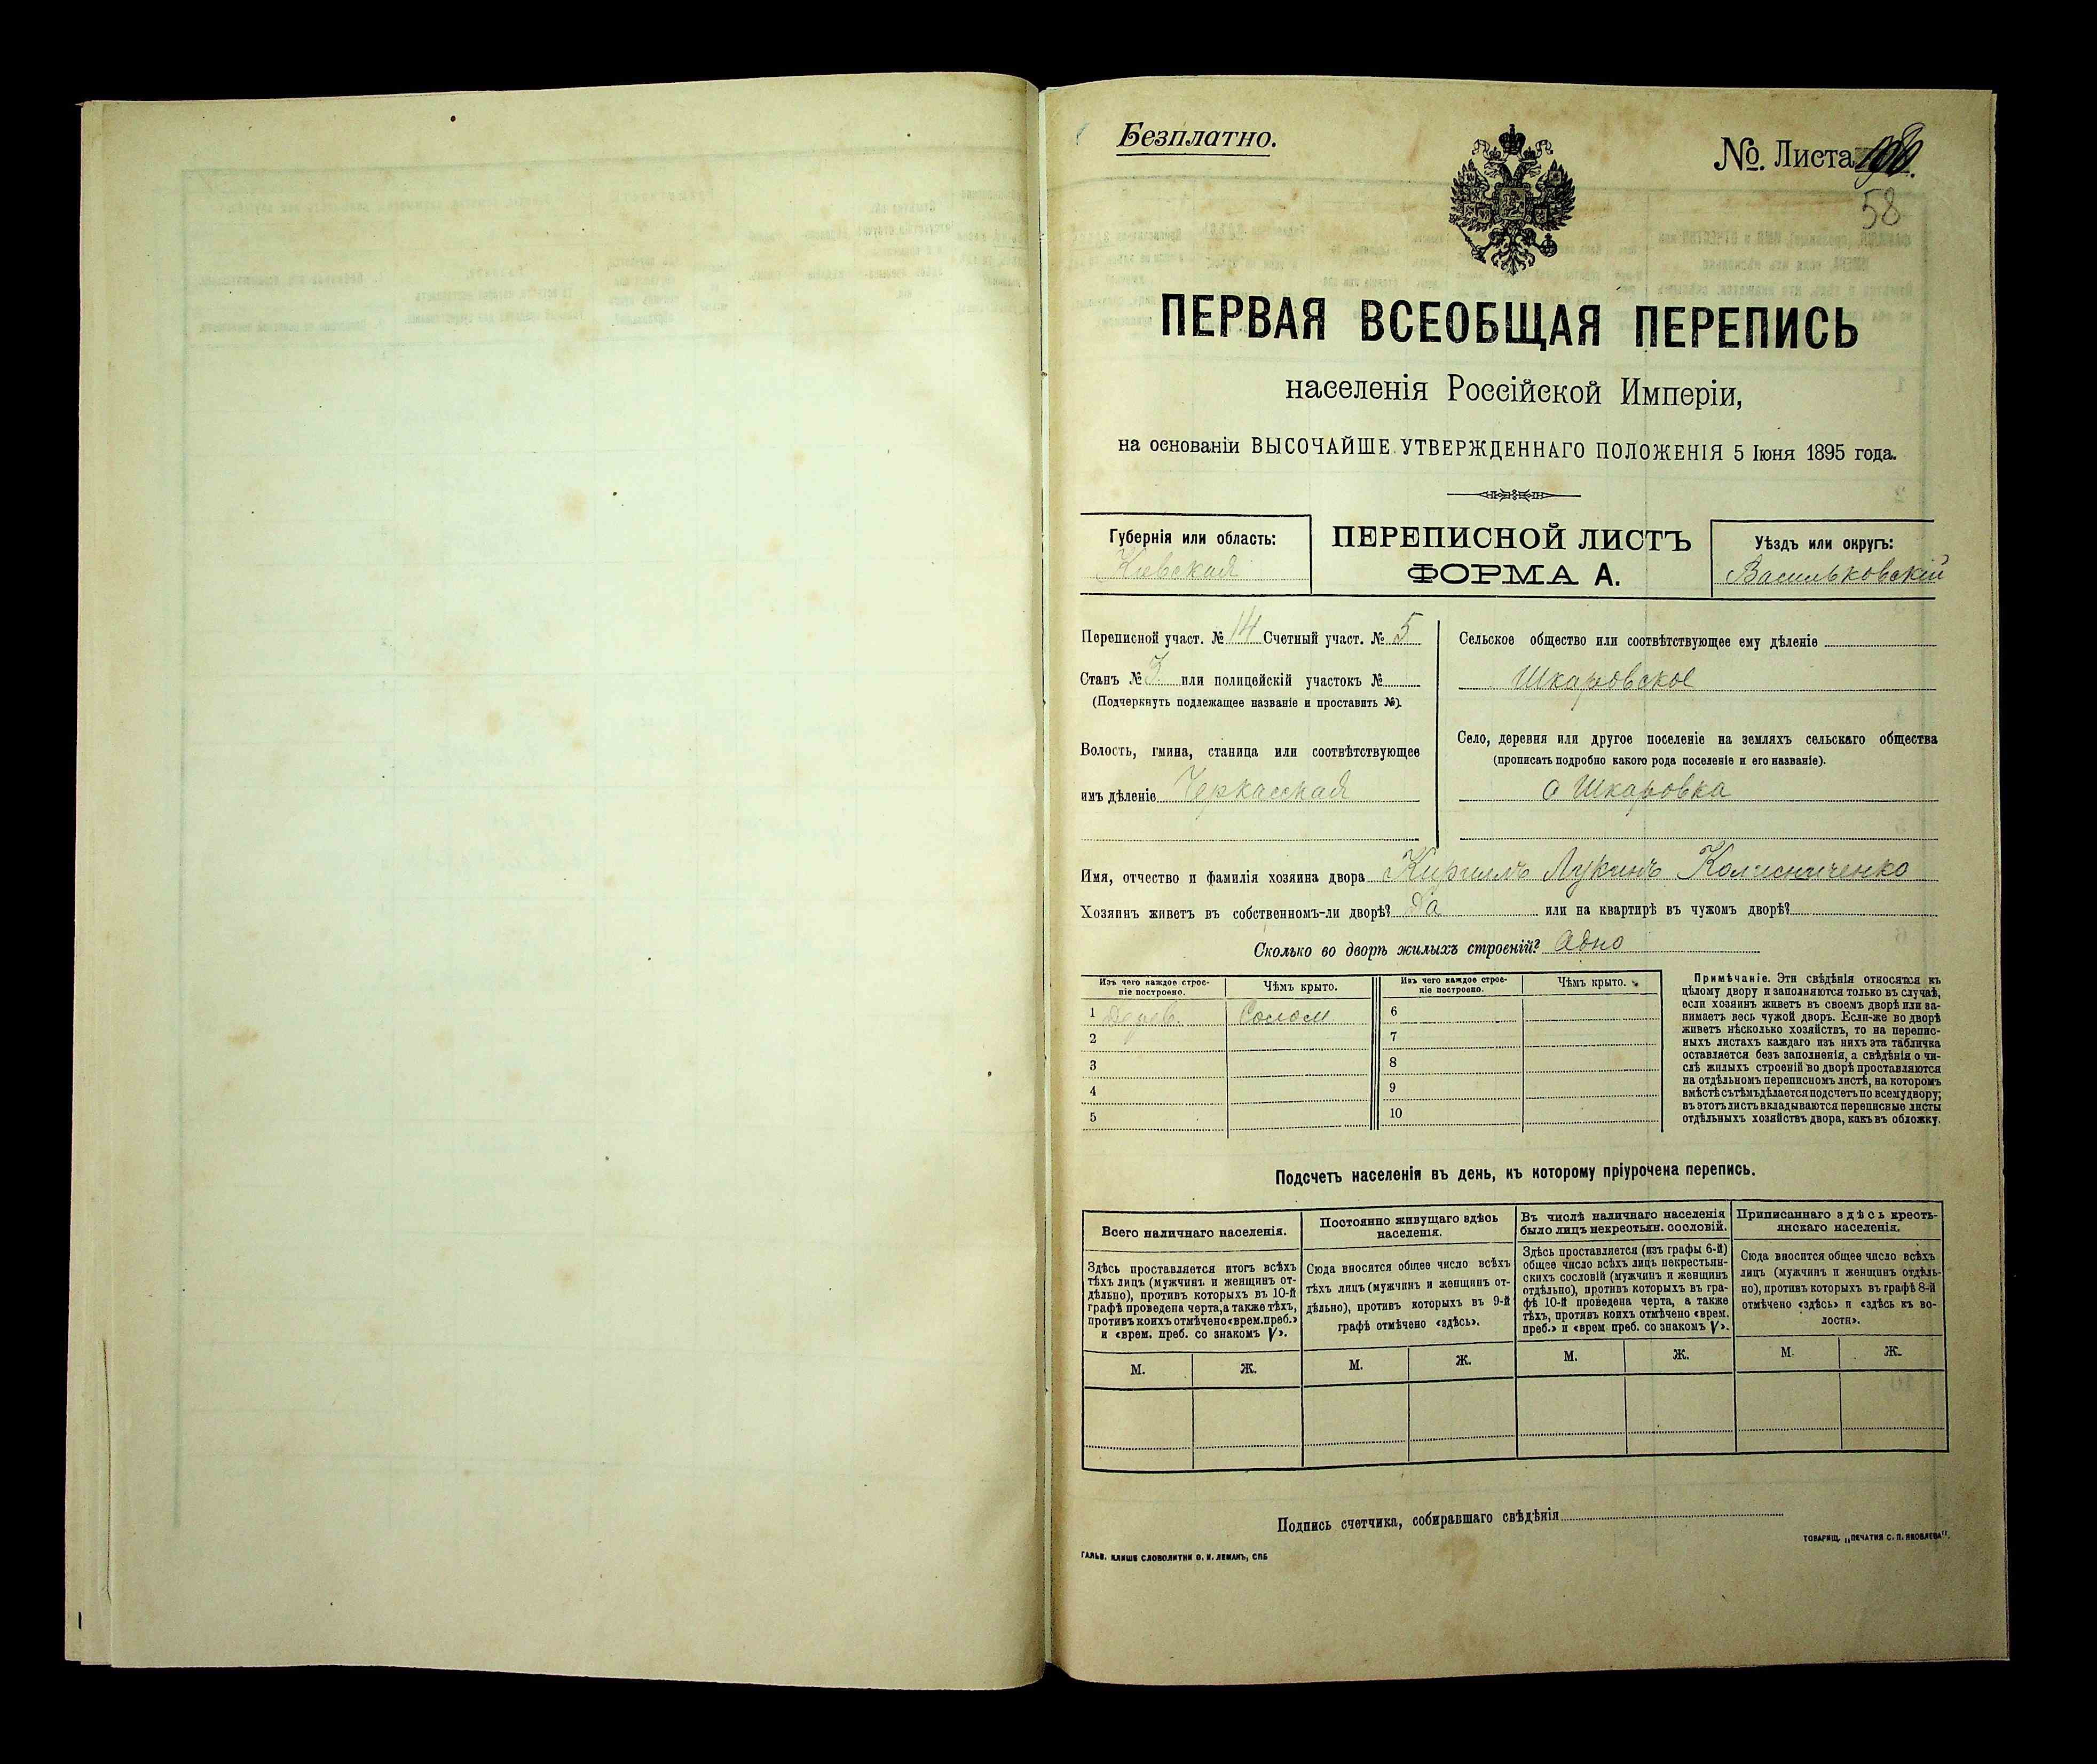 Безплатно.
№. Листа
58
ПЕРВАЯ ВСЕОБЩАЯ ПЕРЕПИСЬ
населенія Россійской Имперіи,
на основаніи ВЫСОЧАЙШЕ УТВЕРЖДЕННАГО ПОЛОЖЕНІЯ 5 Іюня 1895 года.
Губернія или область:
Киевская
ПЕРЕПИСНОЙ ЛИСТЪ
ФОРМА А.
Уѣздъ или округъ:
Васильковскій
Переписной участ. № 14 Счетный участ. № 5
Станъ № 3 или полицейскій участокъ №
(Подчеркнуть подлежащее названіе и проставить №).
Волость, гмина, станица или соотвѣтствующее
имъ дѣленіе Черкасская
Сельское общество или соотвѣтствующее ему дѣленіе
Шкаровское
Село, деревня или другое поселеніе на земляхъ сельскаго общества
(прописать подробно какого рода поселеніе и его названіе).
с Шкаровка
Имя, отчество и фамилія хозяина двора Кириллъ Лукинъ Колисниченко
Хозяинъ живетъ въ собственномъ-ли дворѣ? Да или на квартирѣ въ чужомъ дворѣ?
Сколько во дворѣ жилыхъ строеній? Адно
Изъ чего каждое строе-
ніе построено.
Чѣмъ крыто.
Изъ чего каждое строе-
ніе построено.
Чѣмъ крыто.
1 Дерев. Солом 6
2 7
3 8
4 9
5 10
Примѣчаніе. Эти свѣдѣнія относятся къ
цѣлому двору и заполняются только въ случаѣ,
если хозяинъ живетъ въ своемъ дворѣ или за-
нимаетъ весь чужой дворъ. Если-же во дворѣ
живетъ нѣсколько хозяйствъ, то на перепис-
ныхъ листахъ каждаго изъ нихъ эта табличка
оставляется безъ заполненія, а свѣдѣнія о чи-
слѣ жилыхъ строеній во дворѣ проставляются
на отдѣльномъ переписномъ листѣ, на которомъ
вмѣстѣ съ тѣмъ дѣлается подсчетъ по всему двору;
въ этотъ листъ вкладываются переписные листы
отдѣльныхъ хозяйствъ двора, какъ въ обложку.
Подсчетъ населенія въ день, къ которому пріурочена перепись.
Всего наличнаго населенія.
Здѣсь проставляется итогъ всѣхъ
тѣхъ лицъ (мужчинъ и женщинъ от-
дѣльно), противъ которыхъ въ 10-й
графѣ проведена черта, а также тѣхъ,
противъ коихъ отмѣчено «врем. преб.»
и «врем. преб. со знакомъ V».
М. Ж.
Постоянно живущаго здѣсь
населенія.
Сюда вносится общее число всѣхъ
тѣхъ лицъ (мужчинъ и женщинъ от-
дѣльно), противъ которыхъ въ 9-й
графѣ отмѣчено «здѣсь».
М. Ж.
Въ числѣ наличнаго населенія
было лицъ некрестьян. сословій.
Здѣсь проставляется (изъ графы 6-й)
общее число всѣхъ лицъ некрестьян-
скихъ сословій (мужчинъ и женщинъ
отдѣльно), противъ которыхъ въ гра-
фѣ 10-й проведена черта, а также
тѣхъ, противъ коихъ отмѣчено «врем.
преб.» и «врем преб. со знакомъ V».
М. Ж.
Приписаннаго здѣсь кресть-
янскаго населенія.
Сюда вносится общее число всѣхъ
лицъ (мужчинъ и женщинъ отдѣль-
но), противъ которыхъ въ графѣ 8-й
отмѣчено «здѣсь» и «здѣсь къ во-
лости».
М. Ж.
Подпись счетчика, собиравшаго свѣдѣнія
ГАЛЬВ. КЛИШЕ СЛОВОЛИТНИ О. И. ЛЕМАНЪ, СПБ
ТОВАРИЩ. „ПЕЧАТНЯ С. П. ЯКОВЛЕВА".